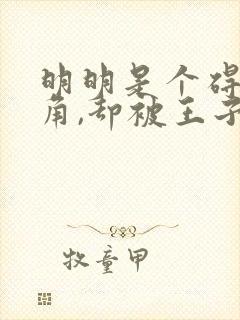 明明是个碍
角,却被王子
牧童甲